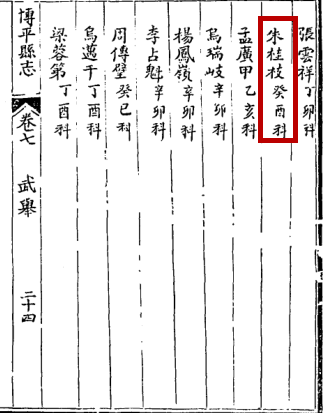 張雲祥丁卯科
朱桂枝癸酉科
孟廣甲乙亥科
馬瑞岐辛卯科
楊鳳嶺辛卯科
李占魁辛卯科
周傳璧癸巳科
馬邁千丁酉科
梁蓉第丁酉科
博平縣志
卷七
武舉
二十四